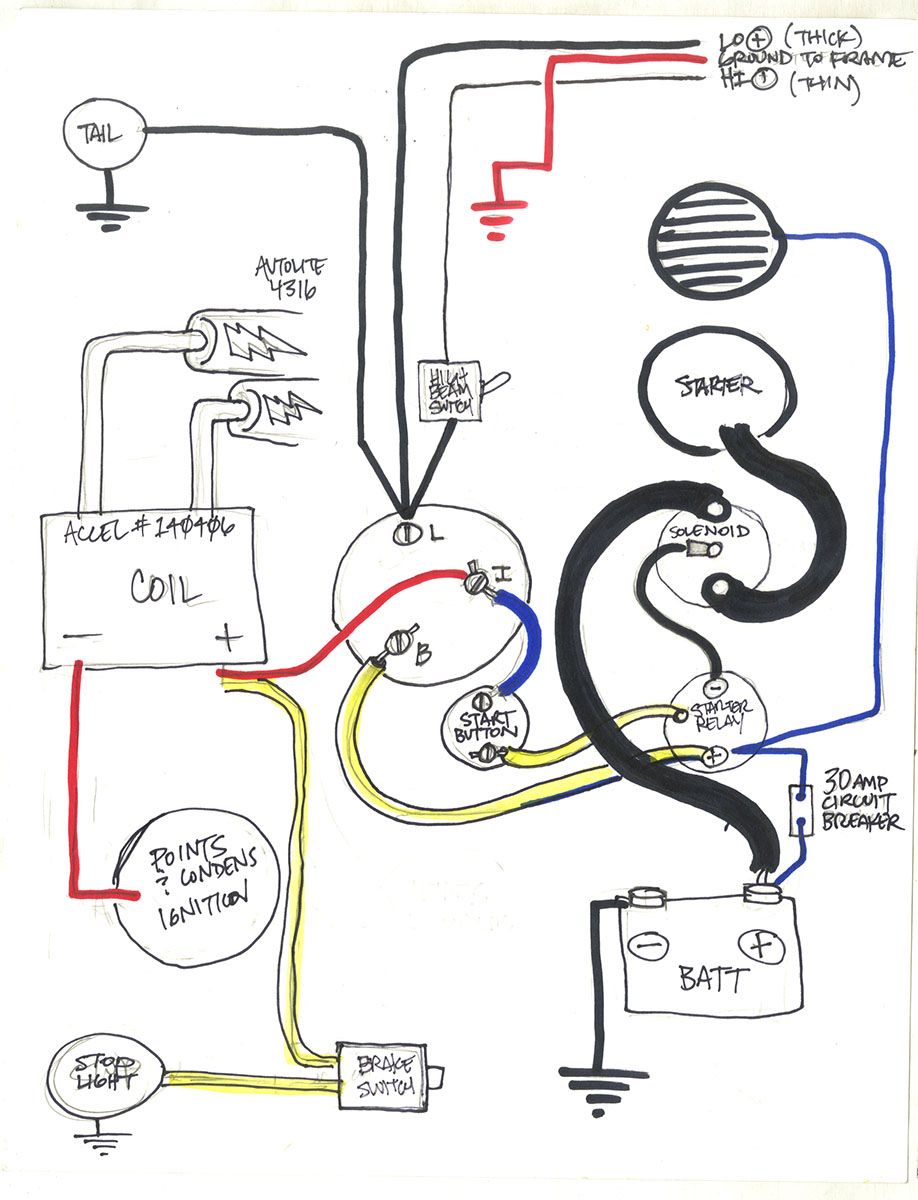 LO + (THICK)
GROUND TO FRAME
HI + (THIN)
TAIL
AUTOLITE
4316
HIGH
BEAM
SWITCH
STARTER
ACCEL # 140406
COIL
- +
L
I
B
SOLENOID
START
BUTTON
-
STARTER
RELAY
+
30 AMP
CIRCUIT
BREAKER
POINTS
? CONDENS
IGNITION
- +
BATT
STOP
LIGHT
BRAKE
SWITCH